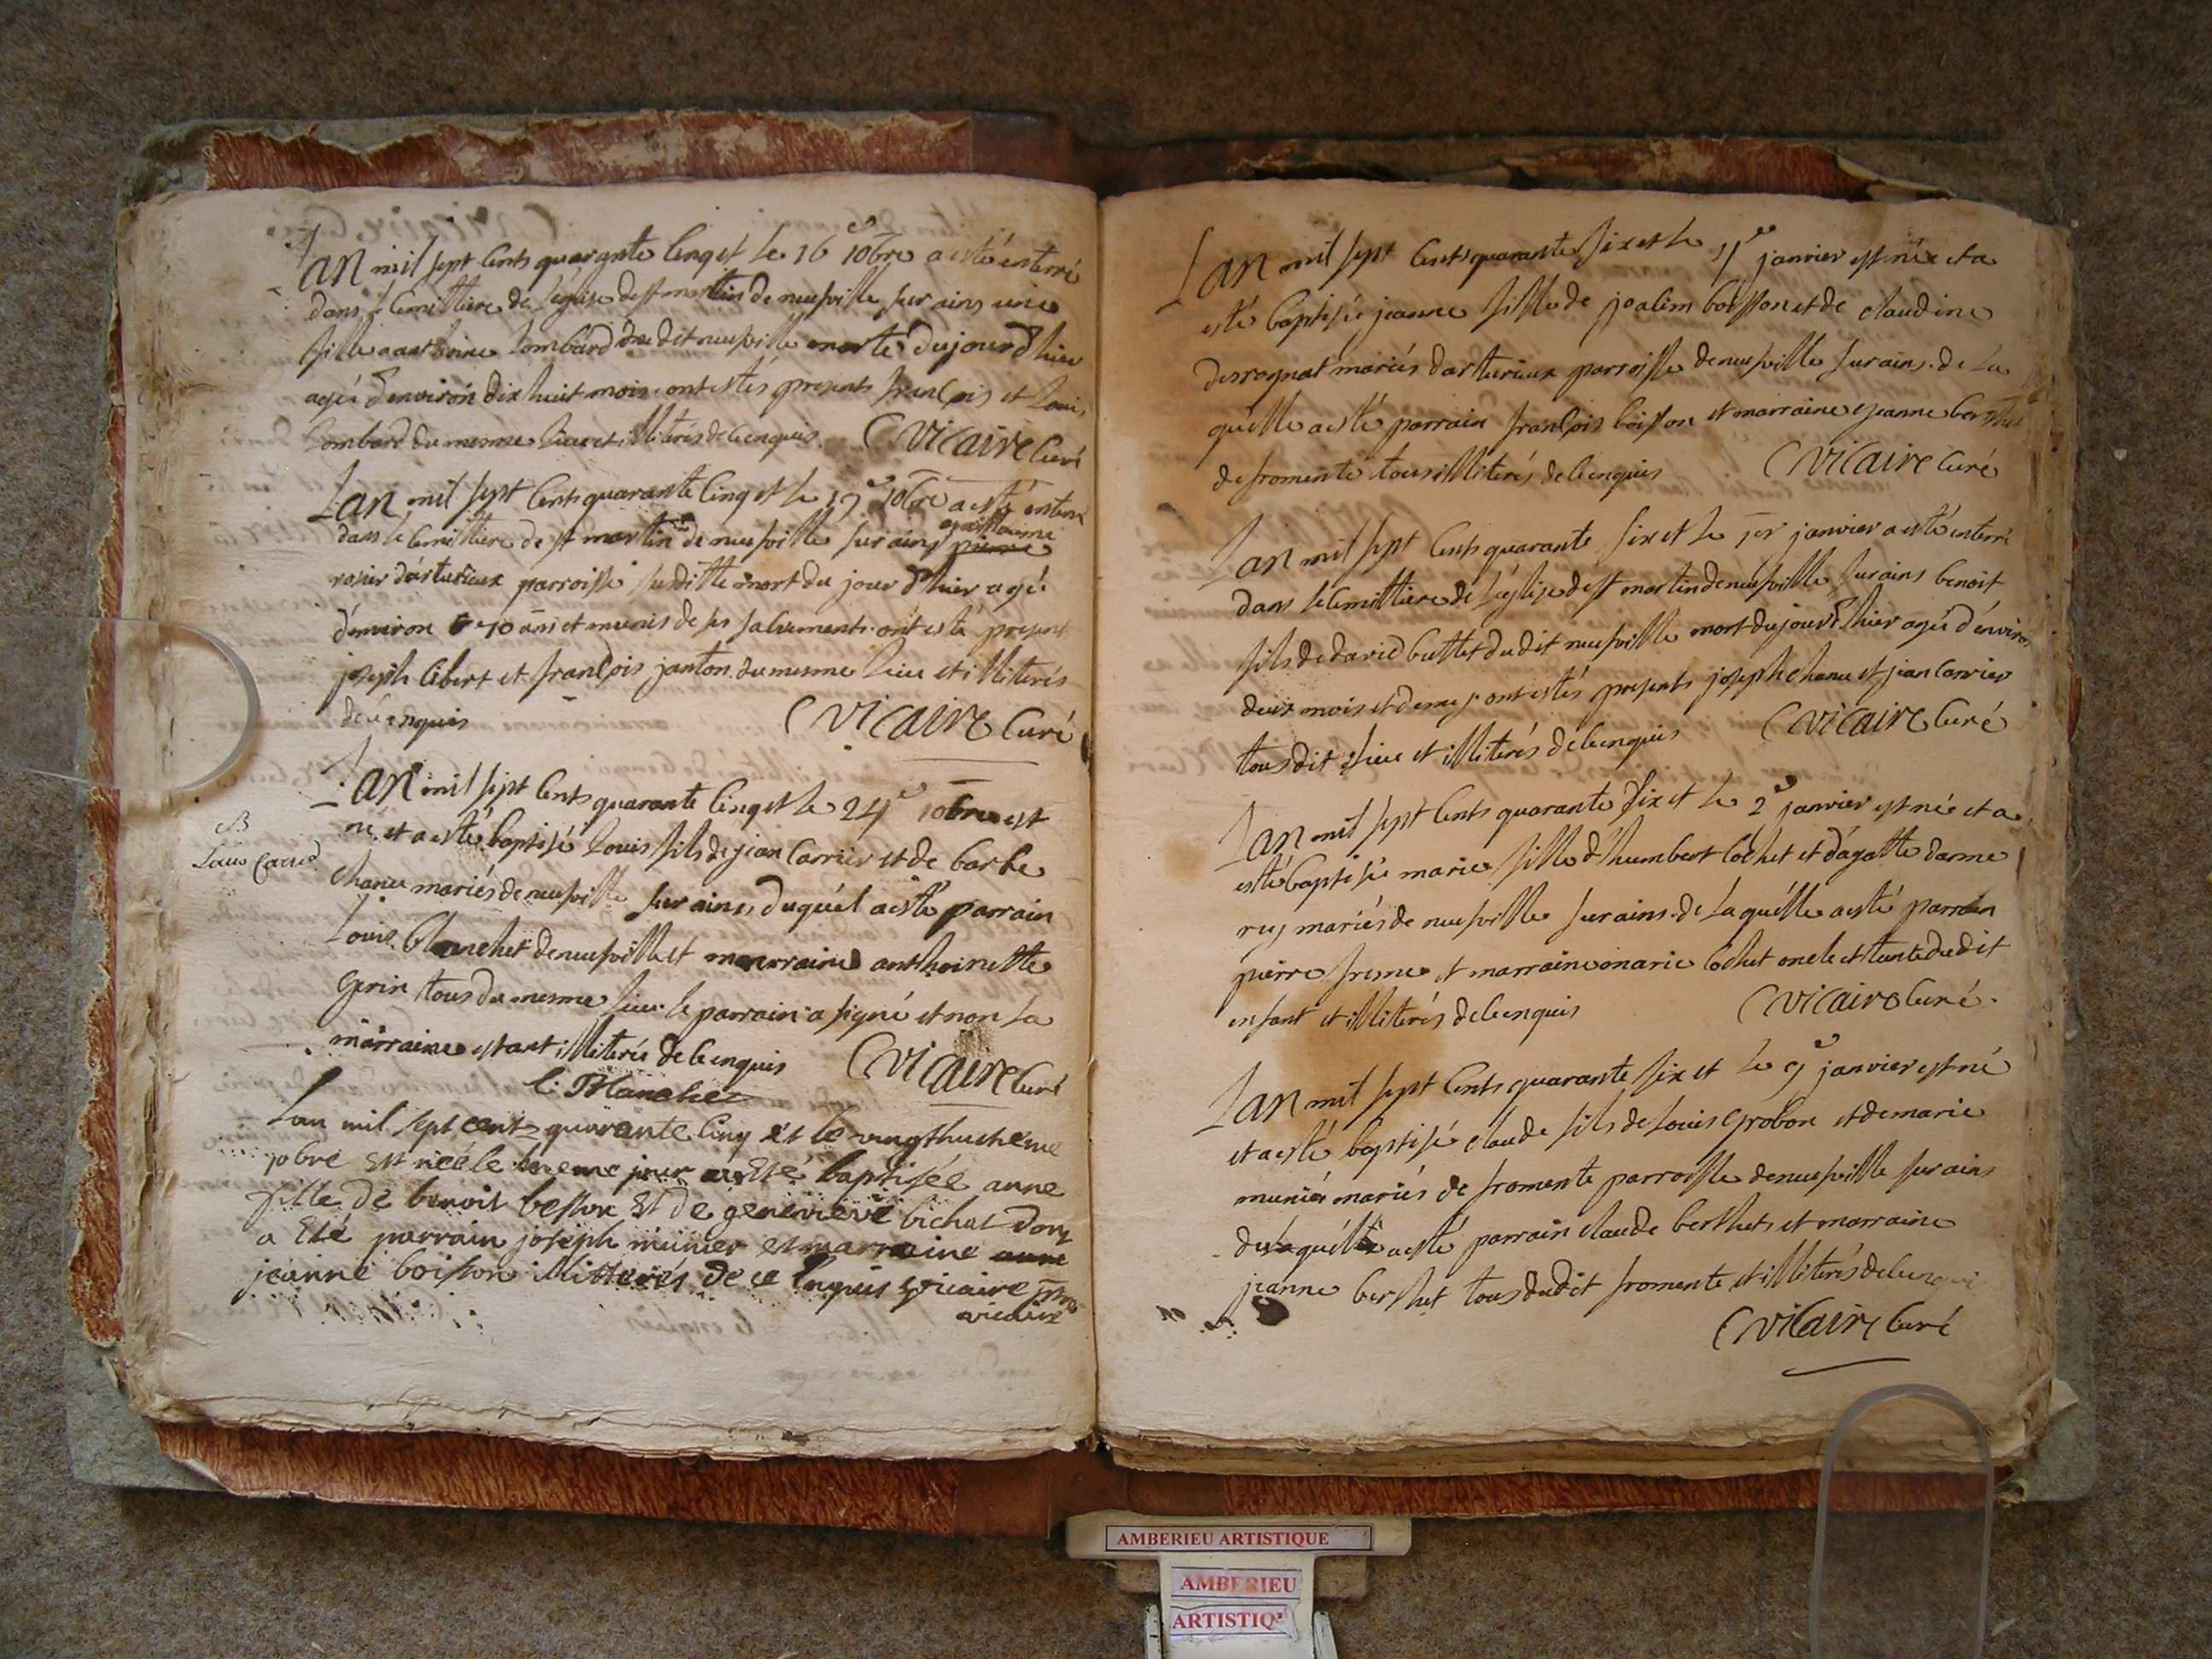 Lan mil sept cents quarante cinq et le 16e 10bre a esté enterré
dans le cemittiere de l'eglise de st martin de neufville sur ains une
fille a anthoine lombard dudit neufville morte du jourd'hier
agée d'environ dix huit mois. ont estés presents francois et louis
lombard du mesme lieu et illiterés de ce enquis. C vicaire curé
Lan mil sept cents quarante cinq et le 17e 10bre a esté enterré
dans le cemittiere de st martin de neufville sur ains guillaume
rosier d'arturieux parroisse susditte mort du jour d'hier agé
d'environ 70 ans et munis de ses sacrements. ont esté present
joseph libert et francois janton du mesme lieu et illiterés
de ce enquis C vicaire curé
Lan mil sept cents quarante cinq et le 24e 10bre est
né et a esté baptisé louis fils de jean carrier et de barbe
B
Louis Carrier
chanu mariés de neufville sur ains, duquél a esté parrain
louis blanchet de neufville et marraine anthoinette
Gerin tous du mesme lieu. le parrain a signé et non la
marraine estant illiterée de ce enquis C vicaire curé
l. Blanchet
Lan mil sept cents quarante cinq et le vingthuitieme
10bre est néé le meme jour a Eté baptisée anne
fille de benoit besson Et de genevieve bichat dont
a Eté parrain joseph munier et marraine
jeanne boisson illitterés de ce enquis vicaire
vicaire
Lan mil sept cents quarante six et le 1er janvier est née et a
esté baptisée jeanne fille de joacim boisson et de claudine
derognat mariés d'arturieux parroisse de neufville sur ains. de la
quélle a esté parrain francois boisson et marraine jeanne berthet
de fromente tous illiterés de ce enquis C vicaire curé
Lan mil sept cents quarante six et le 1er janvier a esté enterré
dans le cemittiere de l'eglise de st martin de neufville sur ains benoit
fils de david buttet dudit neufville mort du jourd'hier agé d'environ
deux mois et demy. ont estés presents joseph chanu et jean carrier
tous dit lieu et illiterés de ce enquis C vicaire curé
Lan mil sept cents quarante six et le 2e janvier est née et a
esté baptisée marie fille d'humbert cochet et d'agatte dame
rey mariés de neufville sur ains. de laquélle a esté parrain
pierre freme et marraine marie cochet oncle et tante dudit
enfant et illiterés de ce enquis C vicaire curé.
Lan mil sept cents quarante six et le 9e janvier est né
et a esté baptisé claude fils de louis grobon et de marie
munier mariés de fromente parroisse de neufville sur ains
de laquélle a esté parrain claude berthet et marraine
jeanne berthet tous dudit fromente et illiterés de ce enquis
C vicaire curé
AMBERIEU ARTISTIQUE
AMBERIEU
ARTISTIQ